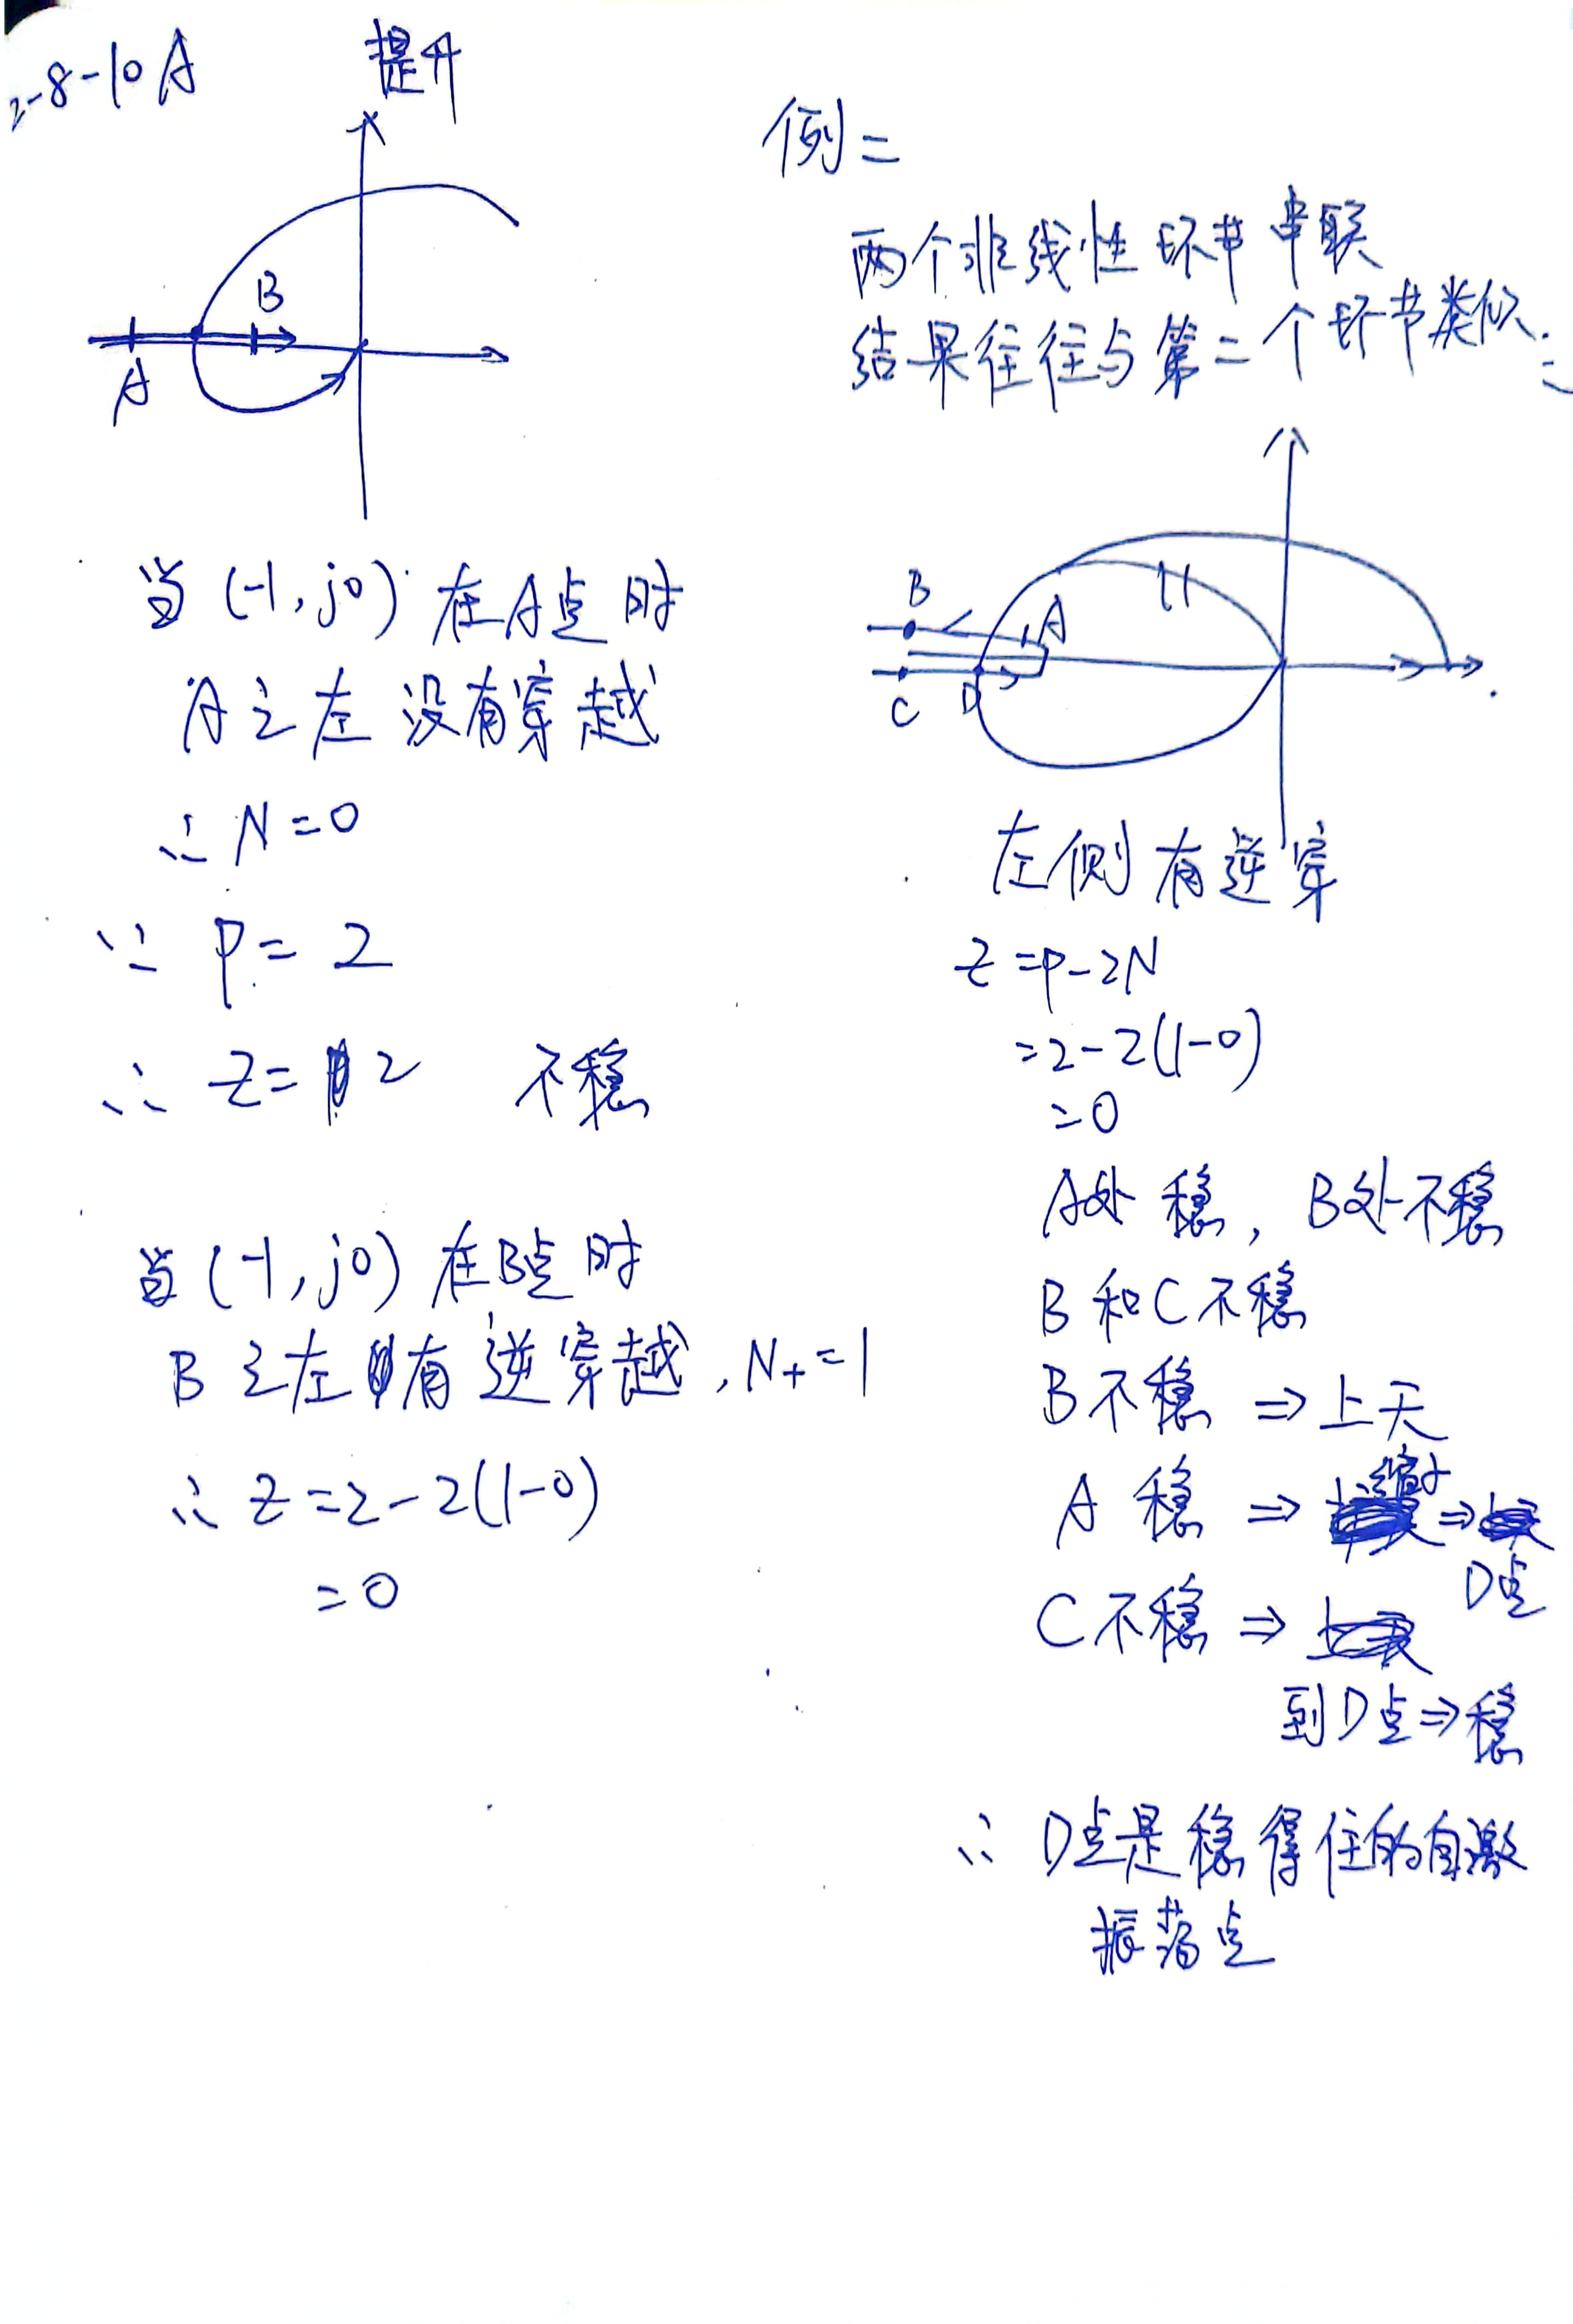 2-8-10A 提升
B
A
当(-1, j0)在A点时
A之左 没有穿越
∴ N=0
∵ P=2
∴ Z=2 不稳
当(-1, j0)在B点时
B之左有逆穿越, N+=1
∴ Z=2-2(1-0)
=0
例二
两个非线性环节串联
结果往往与第二个环节类似.
B
A
C
D
左侧有逆穿
Z=P-2N
=2-2(1-0)
=0
A处稳, B处不稳
B和C不稳
B不稳 ⇒上天
A 稳 ⇒ 缩小 ⇒
D点
C不稳 ⇒
到D点⇒稳
∴ D点是稳得住的自激
振荡点